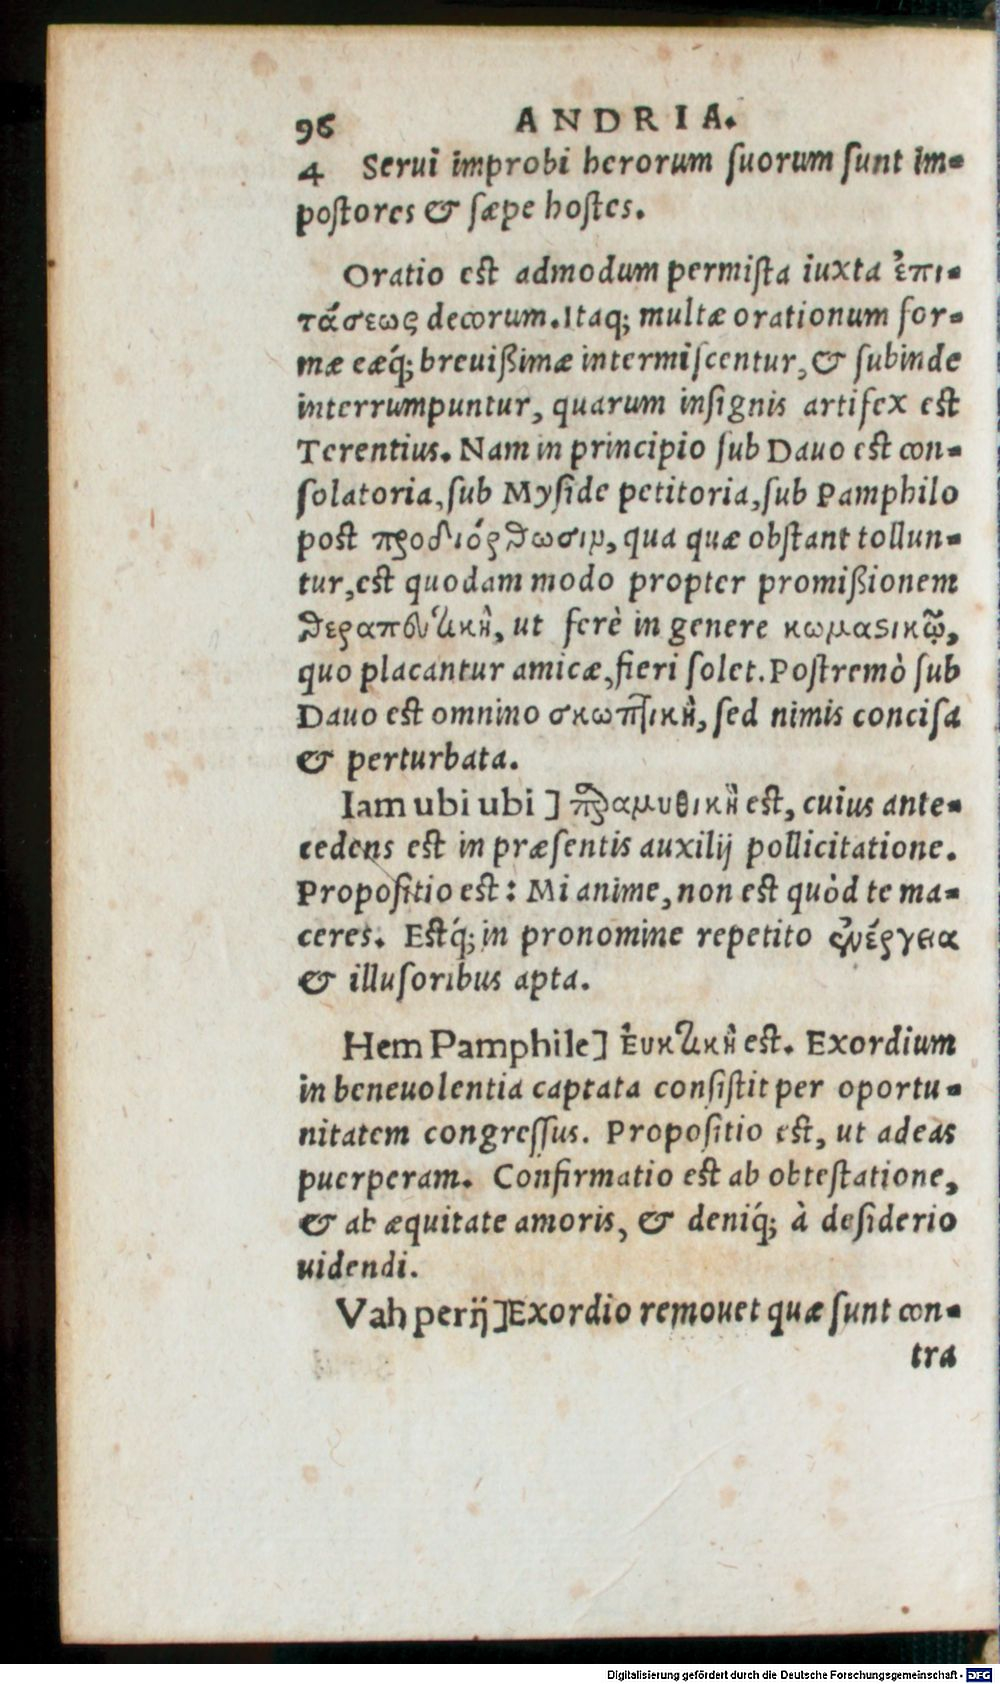 96 ANDRIA.
4 Serui improbi herorum suorum sunt im-
postores & sæpe hostes.
Oratio est admodum permista iuxta ἐπι-
τάσεως decorum. Itaq; multæ orationum for-
mæ eæq́; breuißimæ intermiscentur, & subinde
interrumpuntur, quarum insignis artifex est
Terentius. Nam in principio sub Dauo est con-
solatoria, sub Myside petitoria, sub Pamphilo
post προδιόρθωσιν, qua quæ obstant tollun-
tur, est quodam modo propter promißionem
θεραπευτικὴ, ut ferè in genere κωμαστικῷ,
quo placantur amicæ, fieri solet. Postremò sub
Dauo est omnino σκωπτικὴ, sed nimis concisa
& perturbata.
Iam ubi ubi ] παραμυθικὴ est, cuius ante-
cedens est in præsentis auxilij pollicitatione.
Propositio est: Mi anime, non est quòd te ma-
ceres. Estq́; in pronomine repetito ἐνέργεια
& illusoribus apta.
Hem Pamphile] ἐυκτικὴ est. Exordium
in beneuolentia captata consistit per oportu-
nitatem congressus. Propositio est, ut adeas
puerperam. Confirmatio est ab obtestatione,
& ab æquitate amoris, & deniq́; à desiderio
uidendi.
Vah perij] Exordio remouet quæ sunt con-
tra
Digitalisierung gefördert durch die Deutsche Forschungsgemeinschaft - DFG